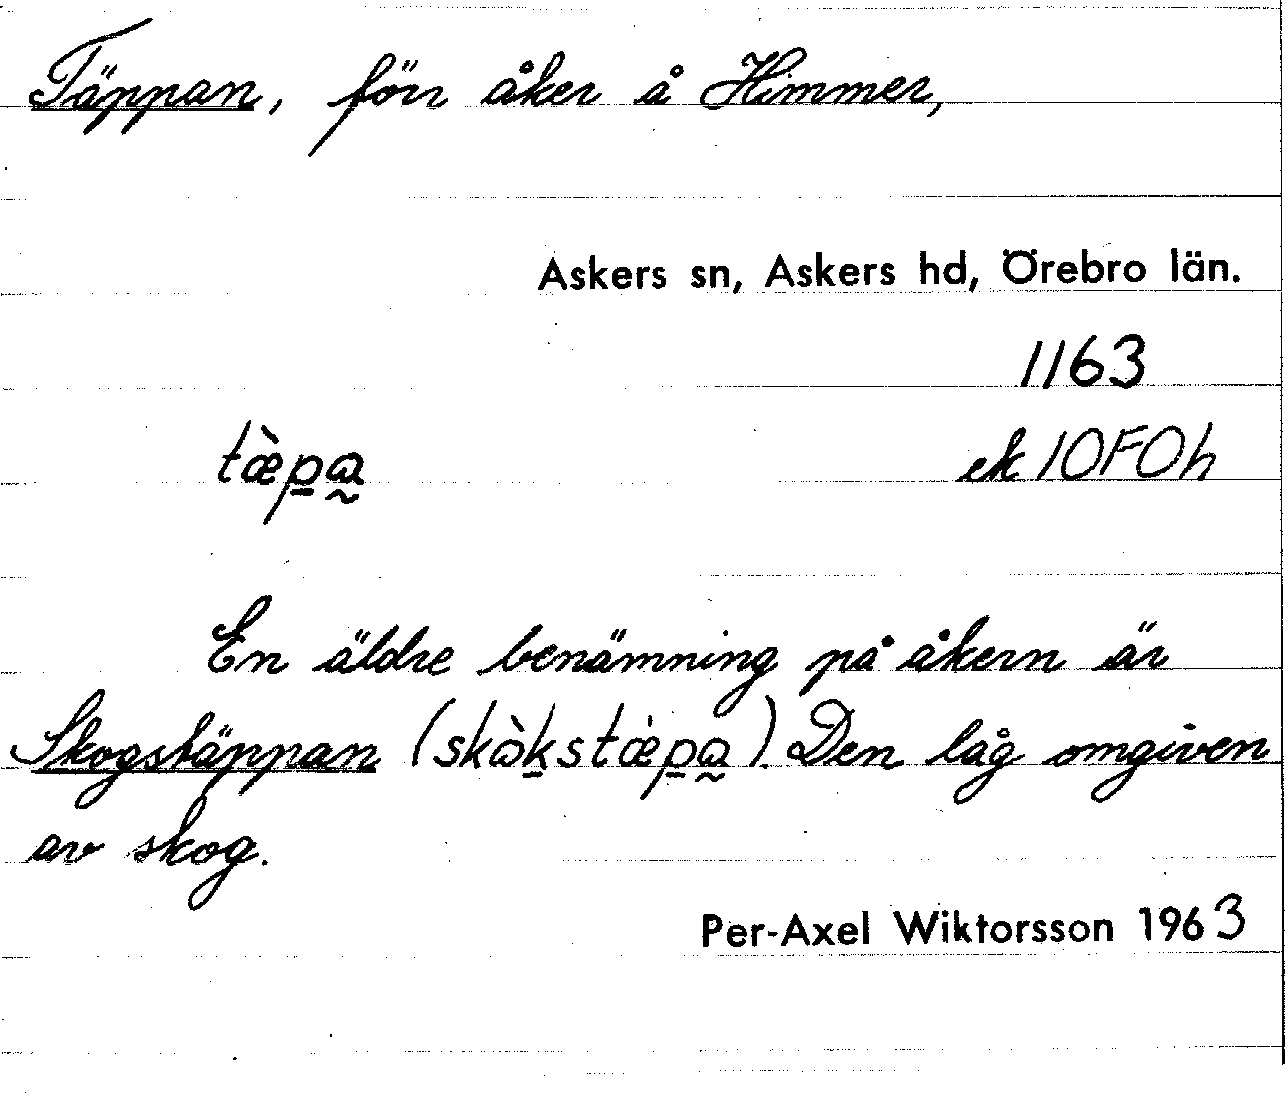 Täppan, förr åker å Himmer,
Askers sn, Askers hd, Örebro län.
1163
tæ̀p̲a̰ ek 10F0h
En äldre benämning på åkern är
Skogstäppan (skὰk̲stæ̀p̲a̰). Den låg omgiven
av skog.
Per-Axel Wiktorsson 1963